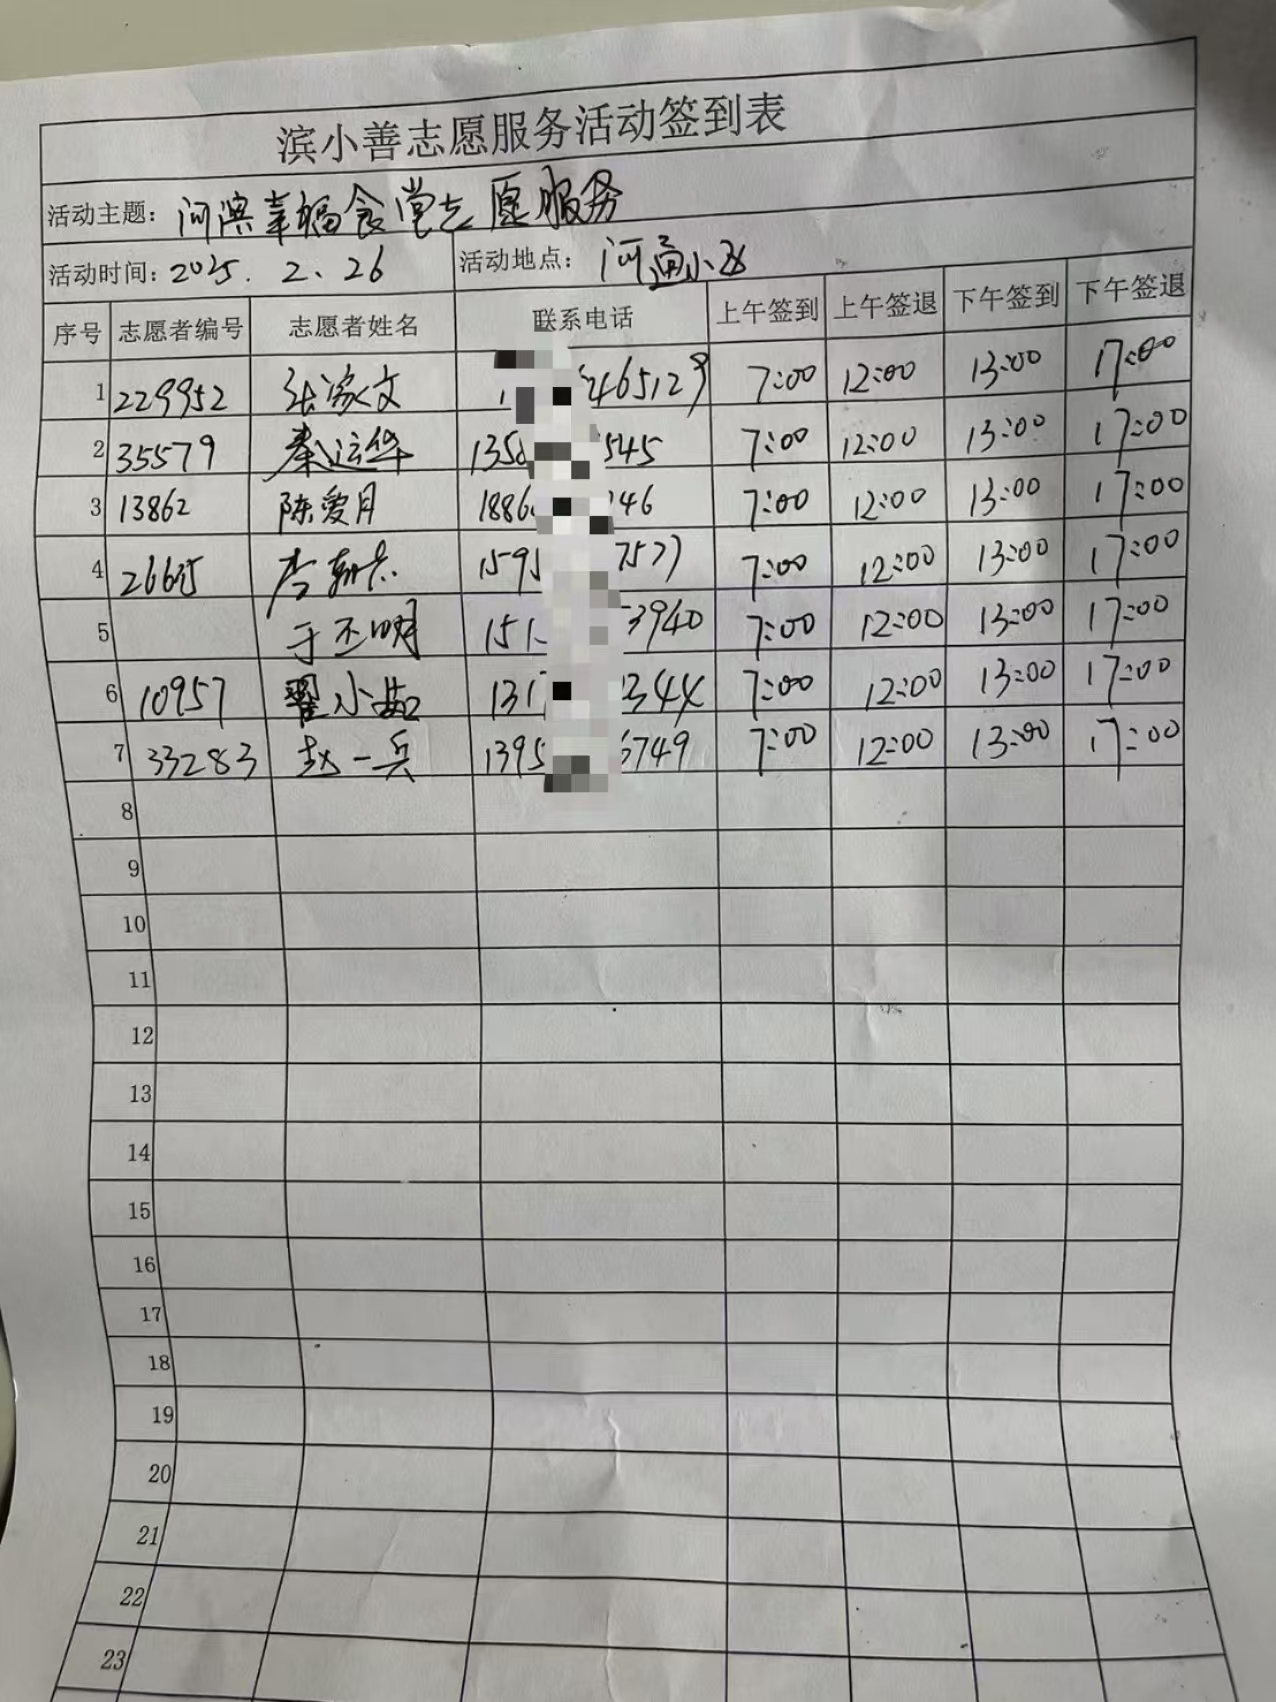 滨小善志愿服务活动签到表
活动主题: 河滨幸福食堂志愿服务
活动时间: 2025. 2、26 活动地点: 河通小区
序号 志愿者编号 志愿者姓名 联系电话 上午签到 上午签退 下午签到 下午签退
1 229952 张家文 465129 7:00 12:00 13:00 17:00
2 35579 秦运华 1358 545 7:00 12:00 13:00 17:00
3 13862 陈爱月 1886 246 7:00 12:00 13:00 17:00
4 李 1595 7577 7:00 12:00 13:00 17:00
5 于丕明 151 3940 7:00 12:00 13:00 17:00
6 10957 翟小茹 131 344 7:00 12:00 13:00 17:00
7 33283 赵一兵 1395 6749 7:00 12:00 13:00 17:00
8
9
10
11
12
13
14
15
16
17
18
19
20
21
22
23